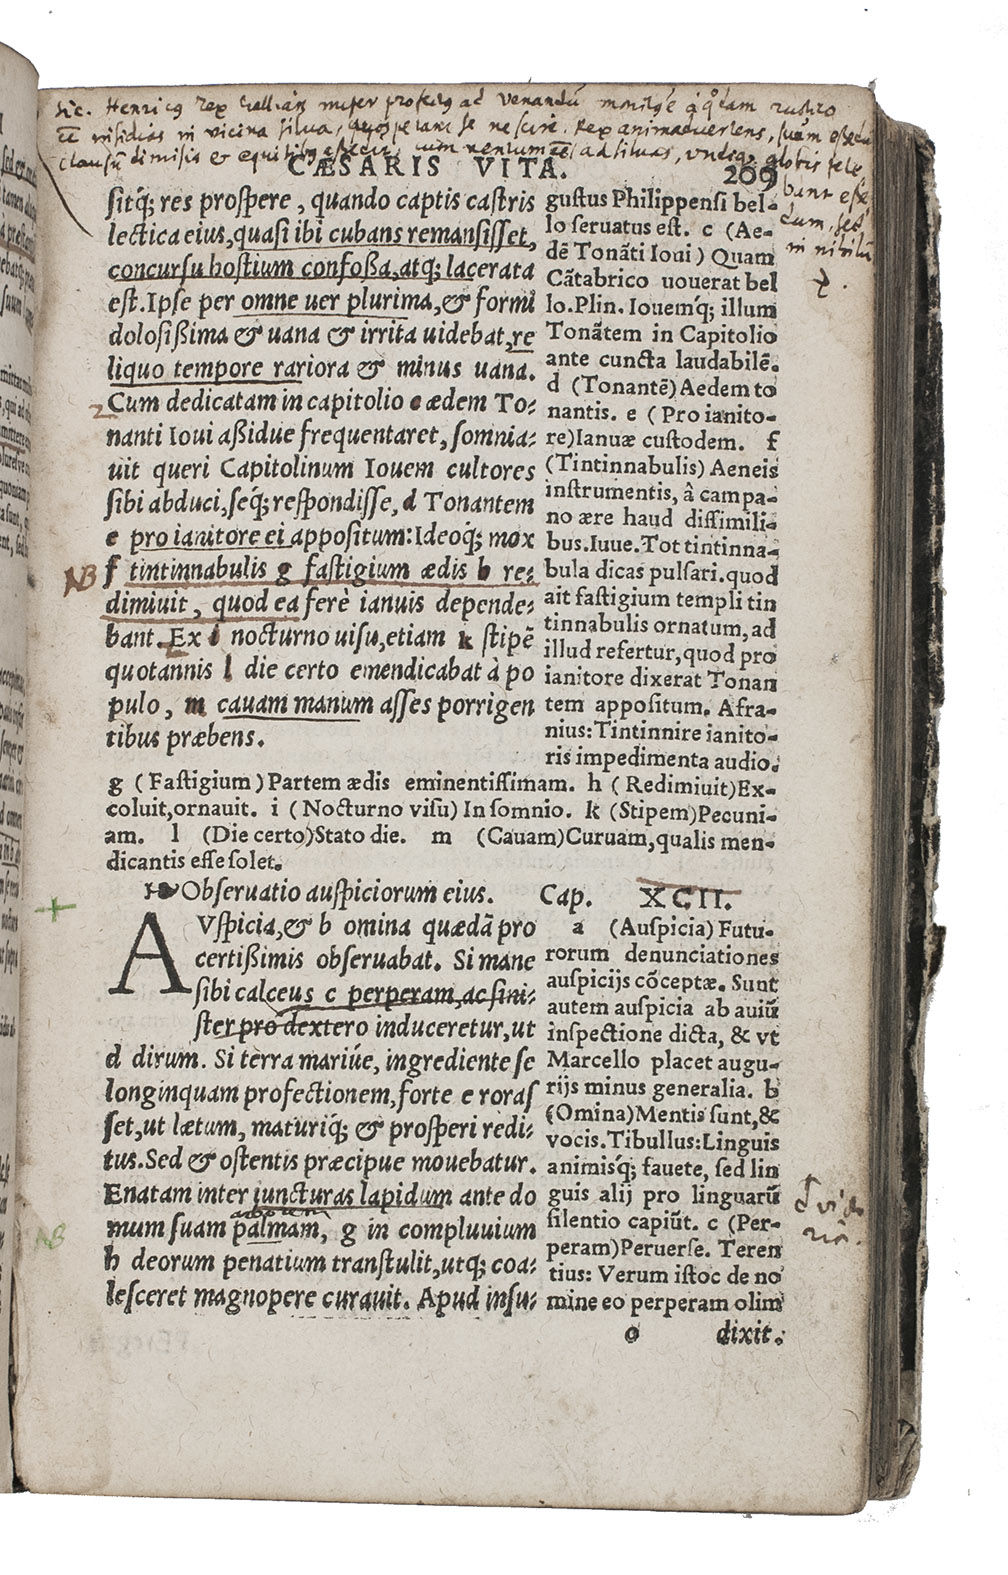 Sic. Henricus rex Galliæ nuper profectus ad venandū monitusq́e à q°dam rustico
in vicina silua, se nescire. Rex animaduertens, suam
dimisis & ad siluas, undiq; globis
bant
dum, sed
in nihilū
CÆSARIS VITA. 209
sitq́; res prospere, quando captis castris
lectica eius, quasi ibi cubans remansisset,
concursu hostium confossa, atq; lacerata
est. Ipse per omne uer plurima, & formi
dolosissima & uana & irrita uidebat, re
liquo tempore rariora & minus uana.
2 Cum dedicatam in capitolio c ædem To-
nanti Ioui assidue frequentaret, somnia-
uit queri Capitolinum Iouem cultores
sibi abduci, seq́; respondisse, d Tonantem
e pro ianitore ei appositum: Ideoq́; mox
NB f tintinnabulis g fastigium ædis h re-
dimiuit, quod ea ferè ianuis depende-
bant. Ex i nocturno uisu, etiam k stipē
quotannis l die certo emendicabat à po
pulo, m cauam manum asses porrigen
tibus præbens.
gustus Philippensi bel-
lo seruatus est. c (Ae-
dē Tonāti Ioui) Quam
Cātabrico uouerat bel
lo. Plin. Iouemq́; illum
Tonātem in Capitolio
ante cuncta laudabilē.
d (Tonantē) Aedem to
nantis. e (Pro ianito-
re) Ianuæ custodem. f
(Tintinnabulis) Aeneis
instrumentis, â campa-
no ære haud dissimili-
bus. Iuue. Tot tintinna-
bula dicas pulsari. quod
ait fastigium templi tin
tinnabulis ornatum, ad
illud refertur, quod pro
ianitore dixerat Tonan
tem appositum. Afra-
nius: Tintinnire ianito-
ris impedimenta audio.
g (Fastigium) Partem ædis eminentissimam. h (Redimiuit) Ex-
coluit, ornauit. i (Nocturno visu) In somnio. k (Stipem) Pecuni-
am. l (Die certo) Stato die. m (Cauam) Curuam, qualis men-
dicantis esse solet.
Obseruatio auspiciorum eius. Cap. XCII.
AVspicia, & b omina quædā pro
certissimis obseruabat. Si mane
sibi calceus c perperam, ac sini-
ster pro dextero induceretur, ut
d dirum. Si terra mariúe, ingrediente se
longinquam profectionem, forte e roras
set, ut lætum, maturiq́; & prosperi redi-
tus. Sed & ostentis præcipue mouebatur.
Enatam inter iuncturas lapidum ante do
arborem
mum suam palmam, g in compluuium
NB h deorum penatium transtulit, utq; coa-
lesceret magnopere curauit. Apud insu-
a (Auspicia) Futu-
rorum denunciationes
auspicijs cōceptæ. Sunt
autem auspicia ab auiū
inspectione dicta, & vt
Marcello placet augu-
rijs minus generalia. b
(Omina) Mentis sunt, &
vocis. Tibullus: Linguis
animisq́; fauete, sed lin
guis alij pro linguarū
silentio capiūt. c (Per-
peram) Peruerse. Teren
tius: Verum istoc de no
mine eo perperam olim
o dixit.